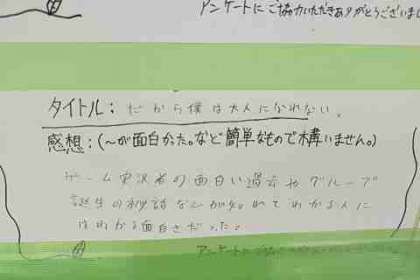 アンケートにご協力いただきありがとうございまし
タイトル：だから僕は大人になれない。
感想：(〜が面白かった。など簡単なもので構いません。)
ゲーム実況者の面白い過去やグループ
誕生の秘話などが
わかる人に
はわかる面白さだった。
アンケートに